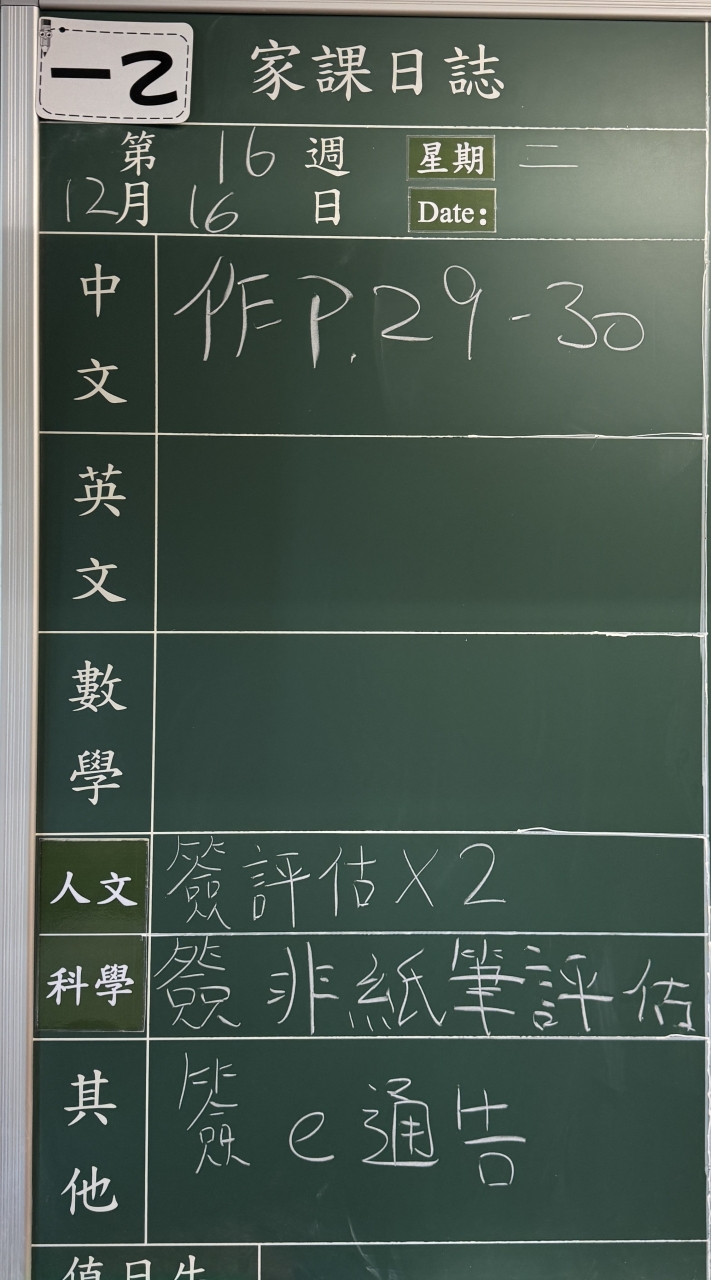 一乙
家課日誌
第 16 週 星期 二
12月 16 日 Date:
中文 作P.29-30
英文
數學
人文 簽評估X2
科學 簽非紙筆評估
其他 簽e通告
值日生